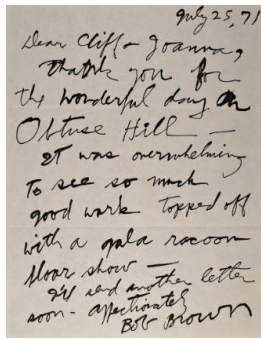 July 25, 71
Dear Cliff + Joanna,
thank you for
the wonderful day on
Obtuse Hill —
It was overwhelming
to see so much
good work topped off
with a gala racoon
floar show —
I'll send another letter
soon - affectionately
Bob Brown